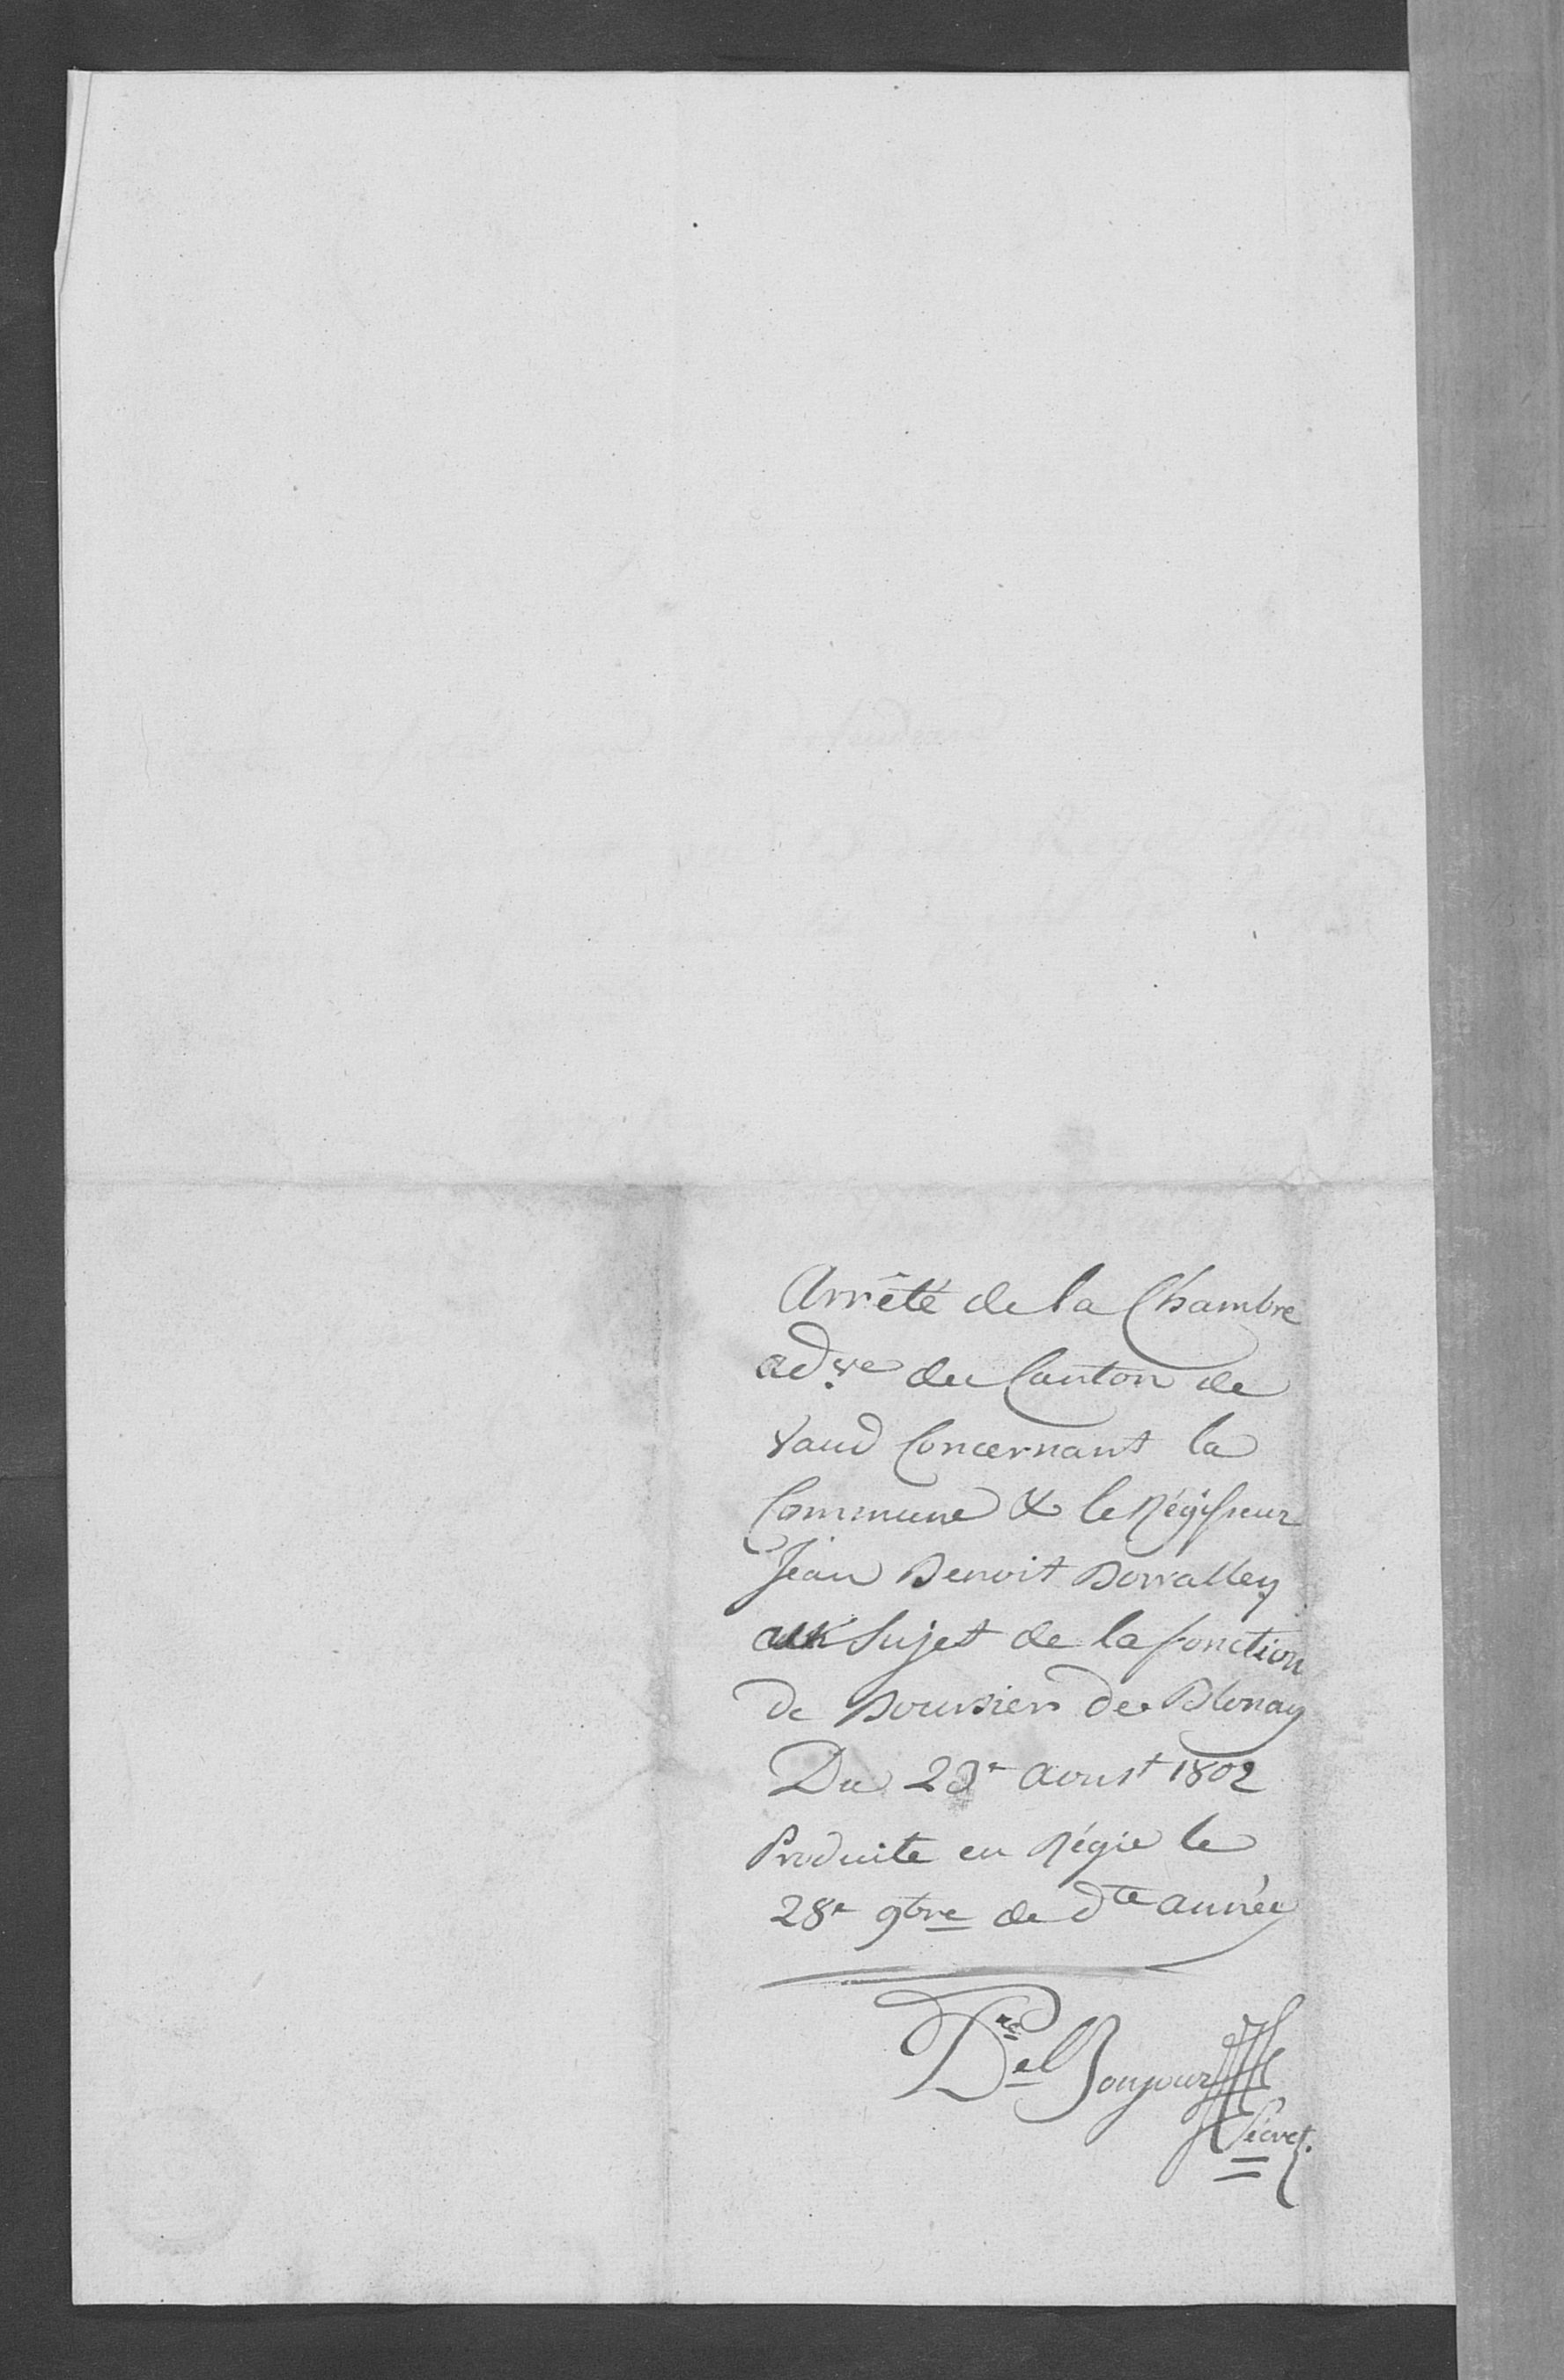 Arrêté de la Chambre
ad.ve du Canton de
Vaud Concernant la
Commune & le Régisseur
Jean Benoit Bovalley
au Sujet de la fonction
de Boursier de Blonay
Du 23e Aoust 1802
Produite en Régie le
28e 9bre de dte année
Del Bonjour
Sécret.